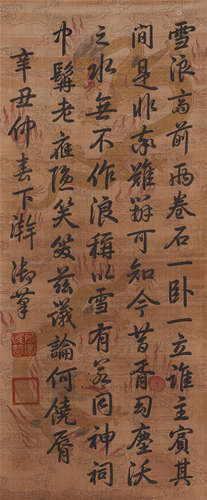 雪浪前兩卷石一卧一立誰主賓其
間是非難辨可知今昔胥塵沃
之水無不作浪稱以雪有若同神祠
中髯老應隱笑笑茲議論何饒脣
辛丑仲春下澣御筆